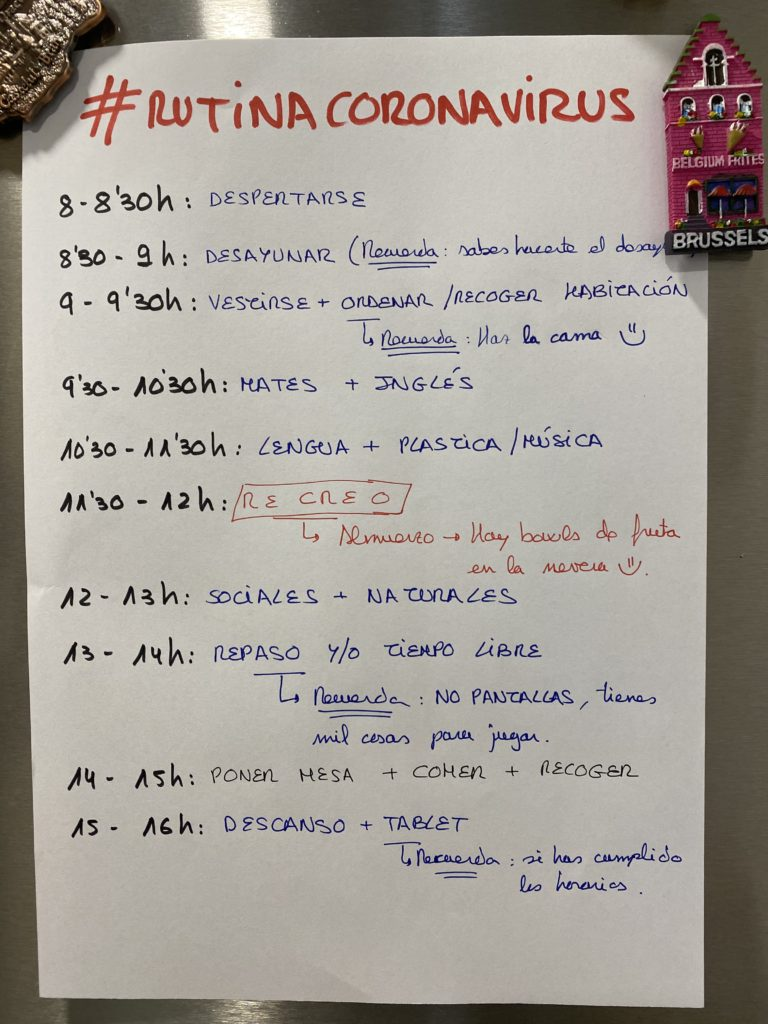 #RUTINA CORONAVIRUS
BELGIUM FRITES
BRUSSELS
8 - 8'30h: DESPERTARSE
8'30 - 9h: DESAYUNAR (Recuerda: sabes hacerte el
9 - 9'30h: VESTIRSE + ORDENAR/RECOGER HABITACIÓN
↳ Recuerda: Haz la cama
9'30 - 10'30h: MATES + INGLÉS
10'30 - 11'30h: LENGUA + PLASTICA/MÚSICA
11'30 - 12h: RECREO
↳ Almuerzo → Hay bowls de fruta
en la nevera
12 - 13h: SOCIALES + NATURALES
13 - 14h: REPASO Y/O TIEMPO LIBRE
↳ Recuerda: NO PANTALLAS, tienes
mil cosas para jugar.
14 - 15h: PONER MESA + COMER + RECOGER
15 - 16h: DESCANSO + TABLET
↳ Recuerda: si has cumplido
los horarios.